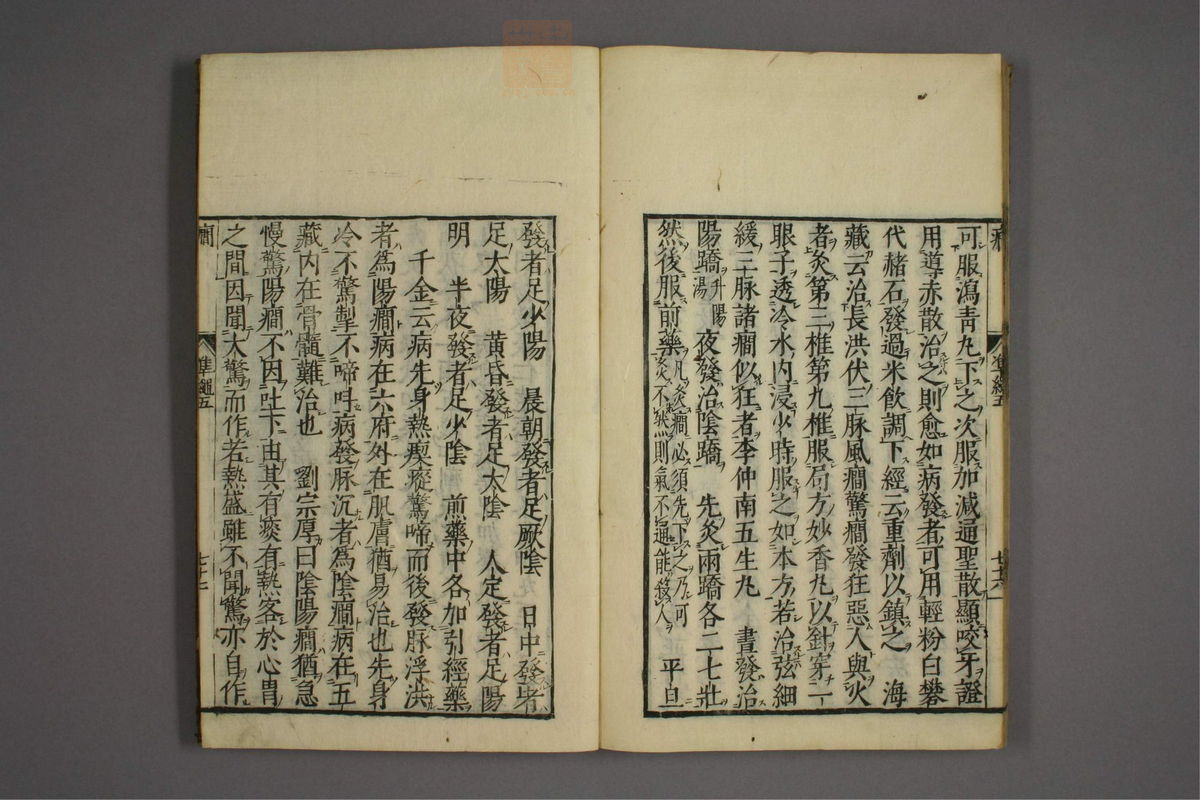 可服瀉青九下之次服加減通聖散顯咬牙證
用導赤散治之則愈如病發者可用輕粉白礬
代赭石發過米飲調下經云重劑以鎮之　海
藏云治長洪伏三脉風癎驚癎發狂惡人與火
者灸第三椎第九椎服局方妙香丸以針穿一
眼子透冷水内浸少時服之如本方若治弦細
緩三脉諸癎似狂者李仲南五生丸　晝發治
陽蹻升陽湯　夜發治陰蹻　先灸兩蹻各二七壯
然後服前藥凡灸癎必須先下之乃可灸不然則氣不通能殺人　平旦
發者足少陽　晨朝發者足厥陰　日中發者
足太陽　黄昏發者足太陰　人定發者足陽
明　半夜發者足少陰　煎藥中各加引經藥
千金云病先身熱瘈瘲驚啼而後發脉浮洪
者爲陽癎病在六府外在肌膚猶易治也先身
冷不驚掣不啼呼病發脉沉者爲陰癎病在五
藏内在骨髓難治也　劉宗厚曰陰陽癎猶急
慢驚陽癎不因吐下由其有痰有熱客於心胃
之間因聞大驚而作若熱盛雖不聞驚亦自作
準繩五
準繩五